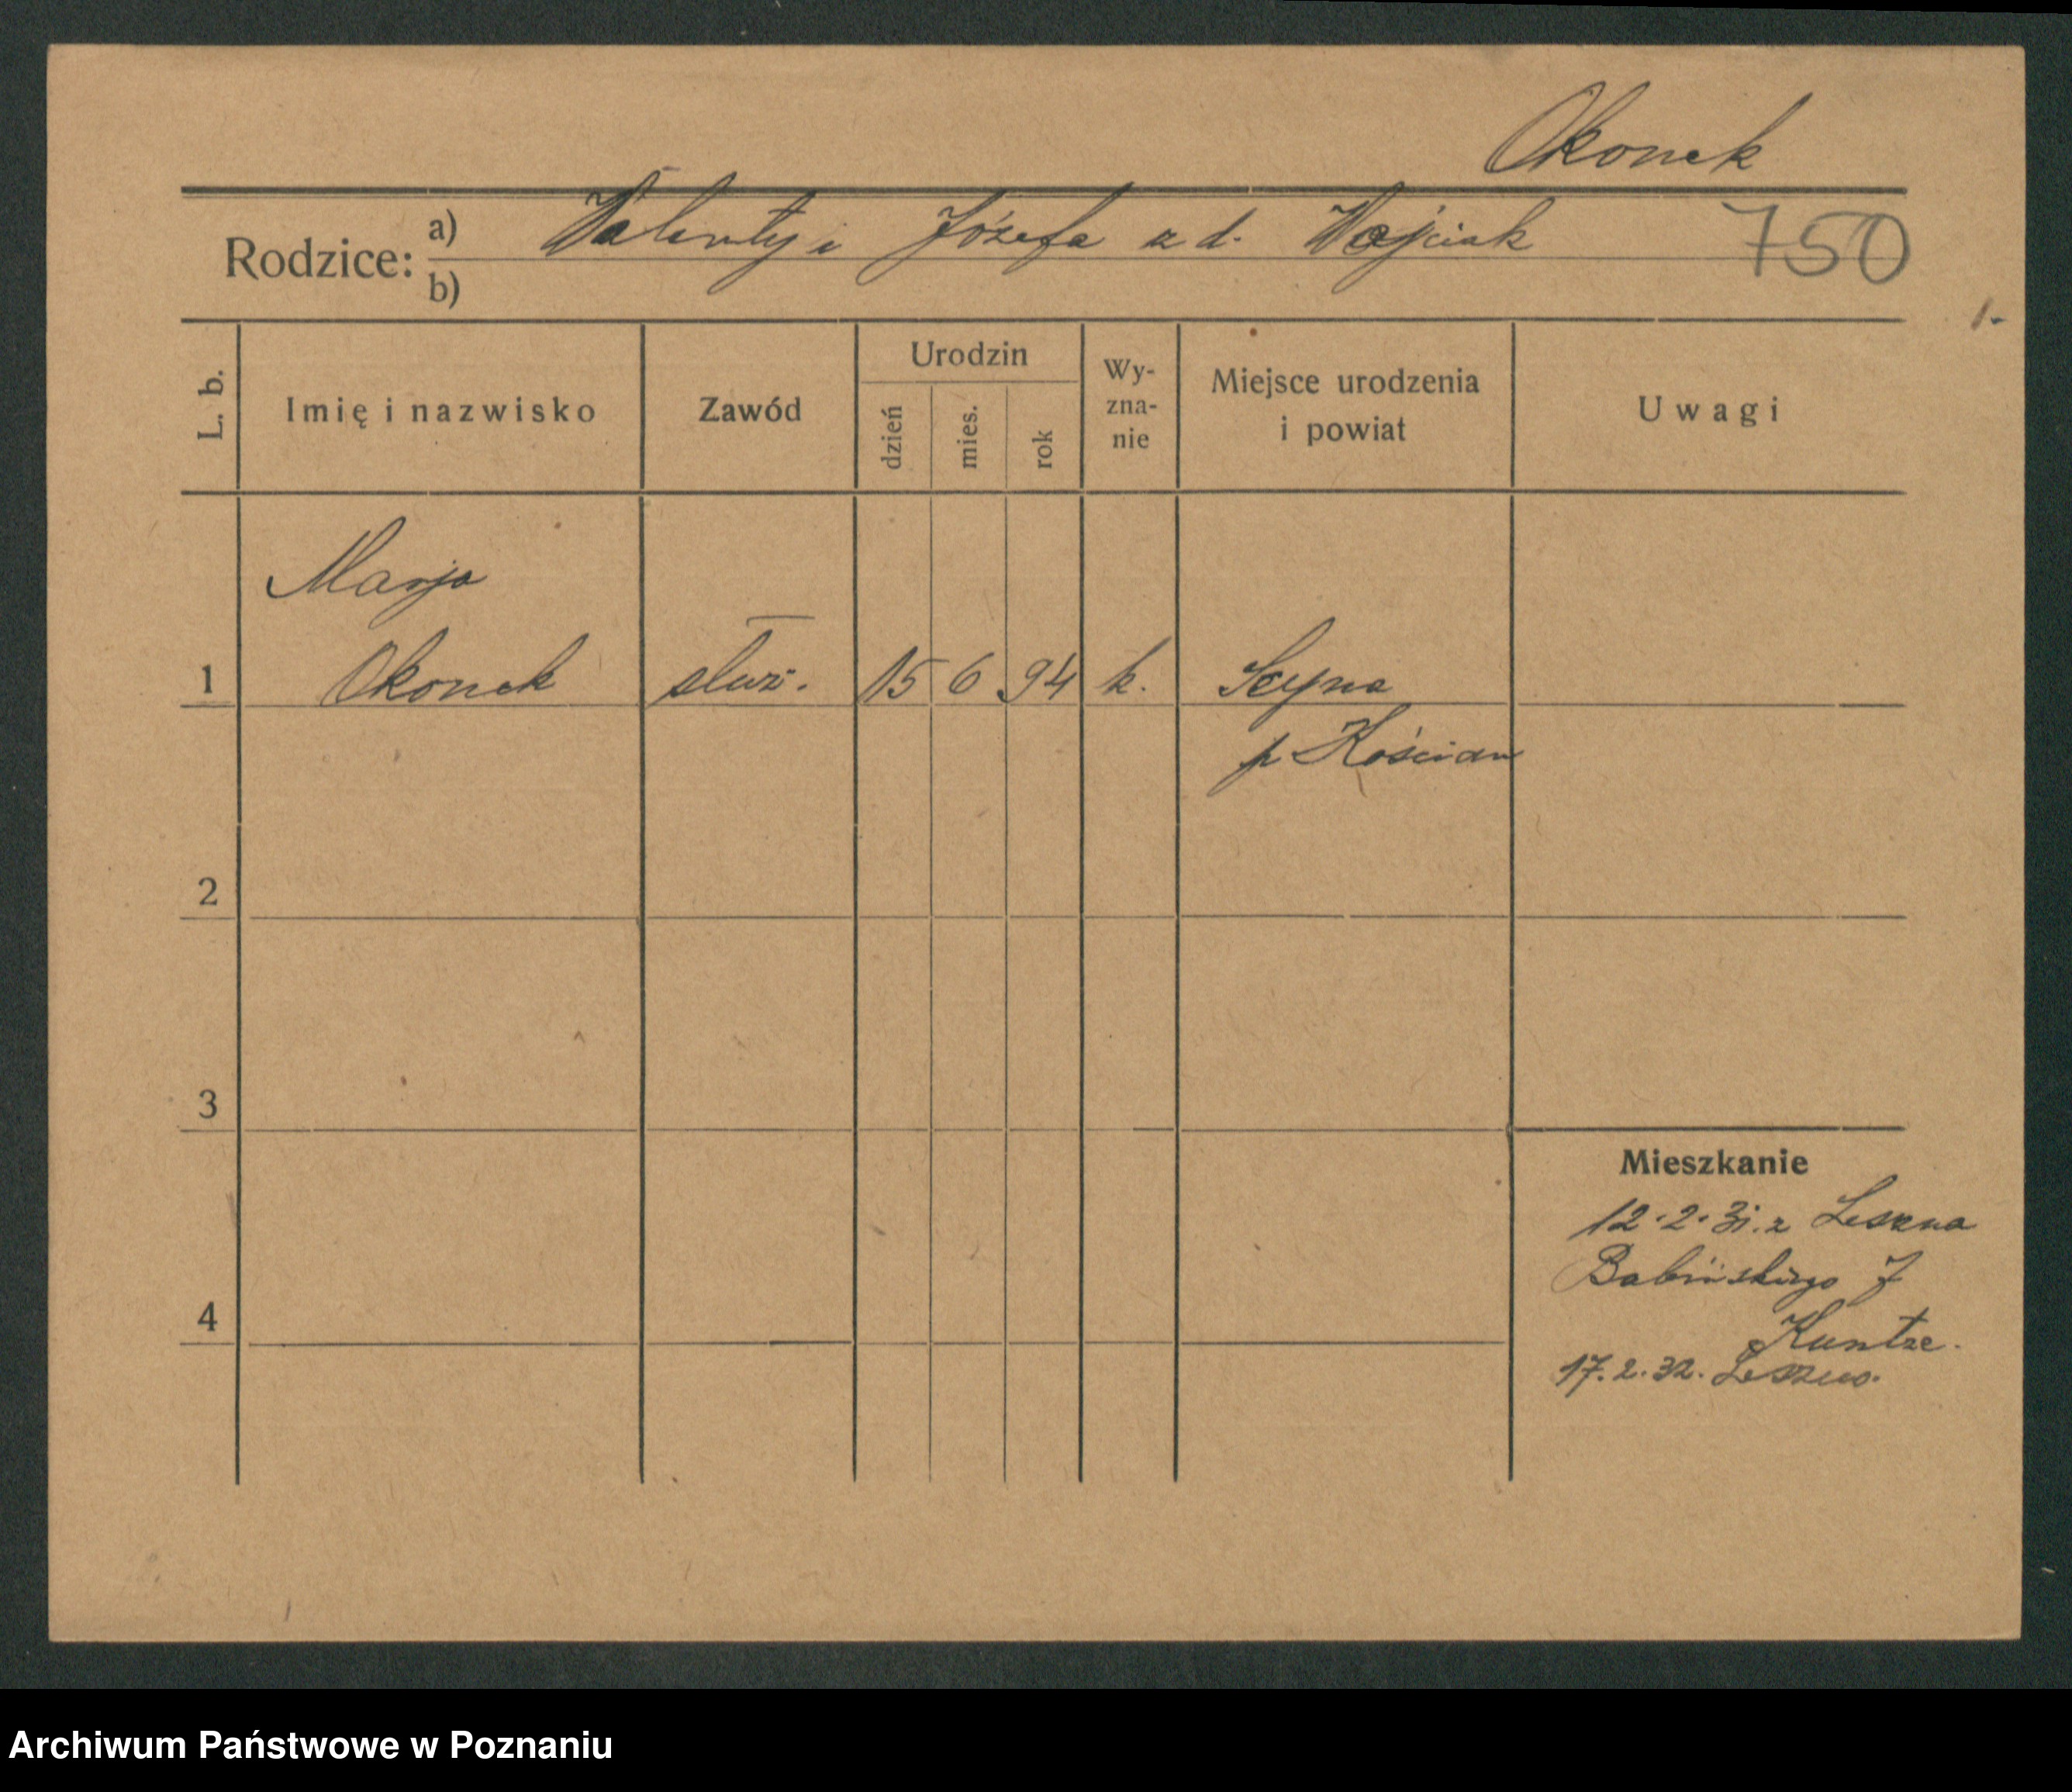 Okonek
Rodzice: a) Walenty i Józefa z d. Wojciak 750
b)
1.
L. b. Imię i nazwisko Zawód Urodzin dzień mies. rok Wy-zna-nie Miejsce urodzenia i powiat Uwagi
Marja
1 Okonek służ. 15 6 94 k.
p Kościan
2
3
Mieszkanie
12.2.31. z Leszna
Babińskiego 7
4
Kuntze.
17.2.32. Leszno.
Archiwum Państwowe w Poznaniu